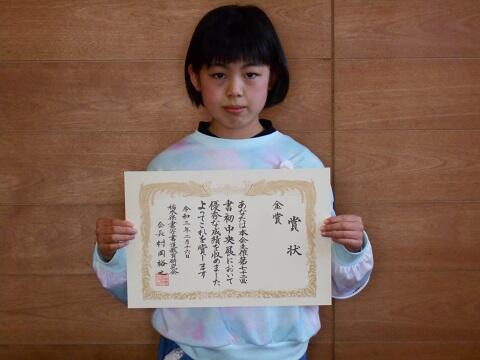 賞状
金賞
あなたは本会主催第七十三回
書初中央展において
優秀な成績を収めました
よってこれを賞します
令和三年二月十六日
栃木県書写書道教育研究会
会長 村岡裕之